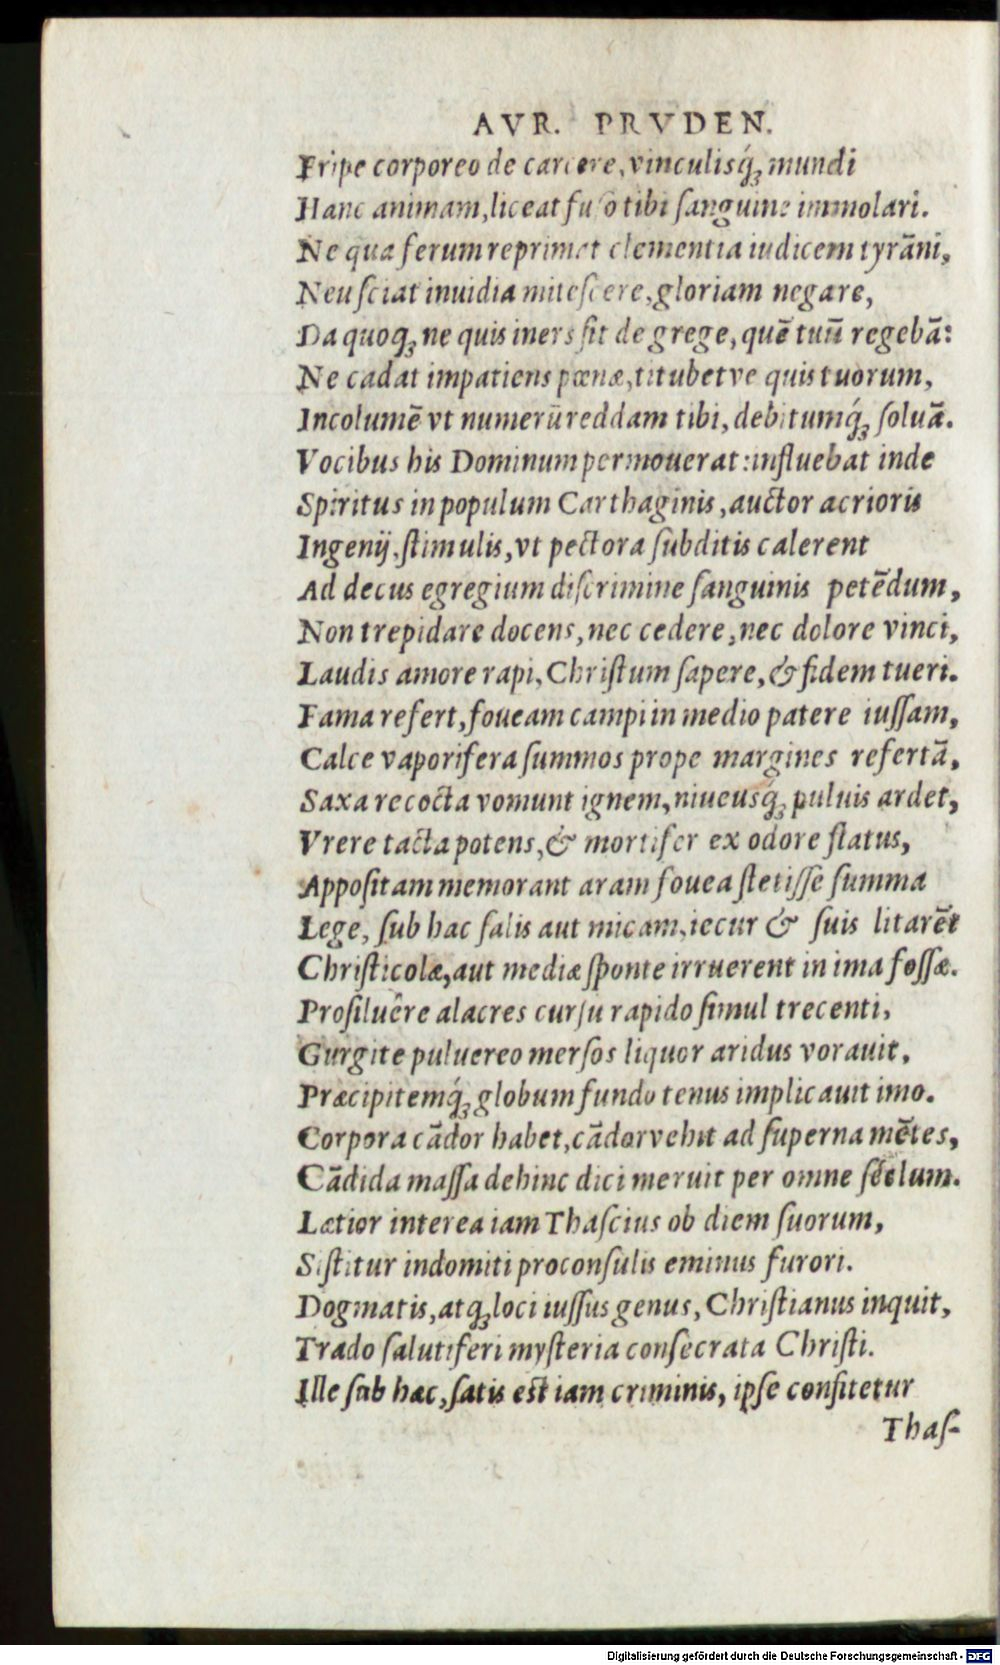 AVR. PRVDEN.
Eripe corporeo de carcere, vinculisq́ꝫ mundi
Hanc animam, liceat fuſo tibi ſanguine immolari.
Ne qua ferum reprimat clementia iudicem tyrãni,
Neu ſciat inuidia miteſcere, gloriam negare,
Da quoqꝫ ne quis iners ſit de grege, quẽ tuũ regebã:
Ne cadat impatiens pœnæ, titubet ve quis tuorum,
Incolumẽ vt numerũ reddam tibi, debitumq́ꝫ ſoluã.
Vocibus his Dominum permouerat: influebat inde
Spiritus in populum Carthaginis, auctor acrioris
Ingenij, ſtimulis, vt pectora ſubditis calerent
Ad decus egregium diſcrimine ſanguinis petẽdum,
Non trepidare docens, nec cedere, nec dolore vinci,
Laudis amore rapi, Chriſtum ſapere, & fidem tueri.
Fama refert, foueam campi in medio patere iuſſam,
Calce vaporifera ſummos prope margines refertã,
Saxa recocta vomunt ignem, niueusq́ꝫ puluis ardet,
Vrere tacta potens, & mortifer ex odore flatus,
Appoſitam memorant aram fouea ſtetiſſe ſumma
Lege, ſub hac ſalis aut micam, iecur & ſuis litarẽt
Chriſticolæ, aut mediæ ſponte irruerent in ima foſſæ.
Proſiluêre alacres curſu rapido ſimul trecenti,
Gurgite puluereo merſos liquor aridus vorauit,
Præcipitemq́ꝫ globum fundo tenus implicauit imo.
Corpora cãdor habet, cãdor vehit ad ſuperna mẽtes,
Cãdida maſſa dehinc dici meruit per omne ſéclum.
Lætior interea iam Thaſcius ob diem ſuorum,
Siſtitur indomiti proconſulis eminus furori.
Dogmatis, atqꝫ loci iuſſus genus, Chriſtianus inquit,
Trado ſalutiferi myſteria conſecrata Chriſti.
Ille ſub hæc, ſatis eſt iam criminis, ipſe confitetur
Thaſ-
Digitalisierung gefördert durch die Deutsche Forschungsgemeinschaft - DFG